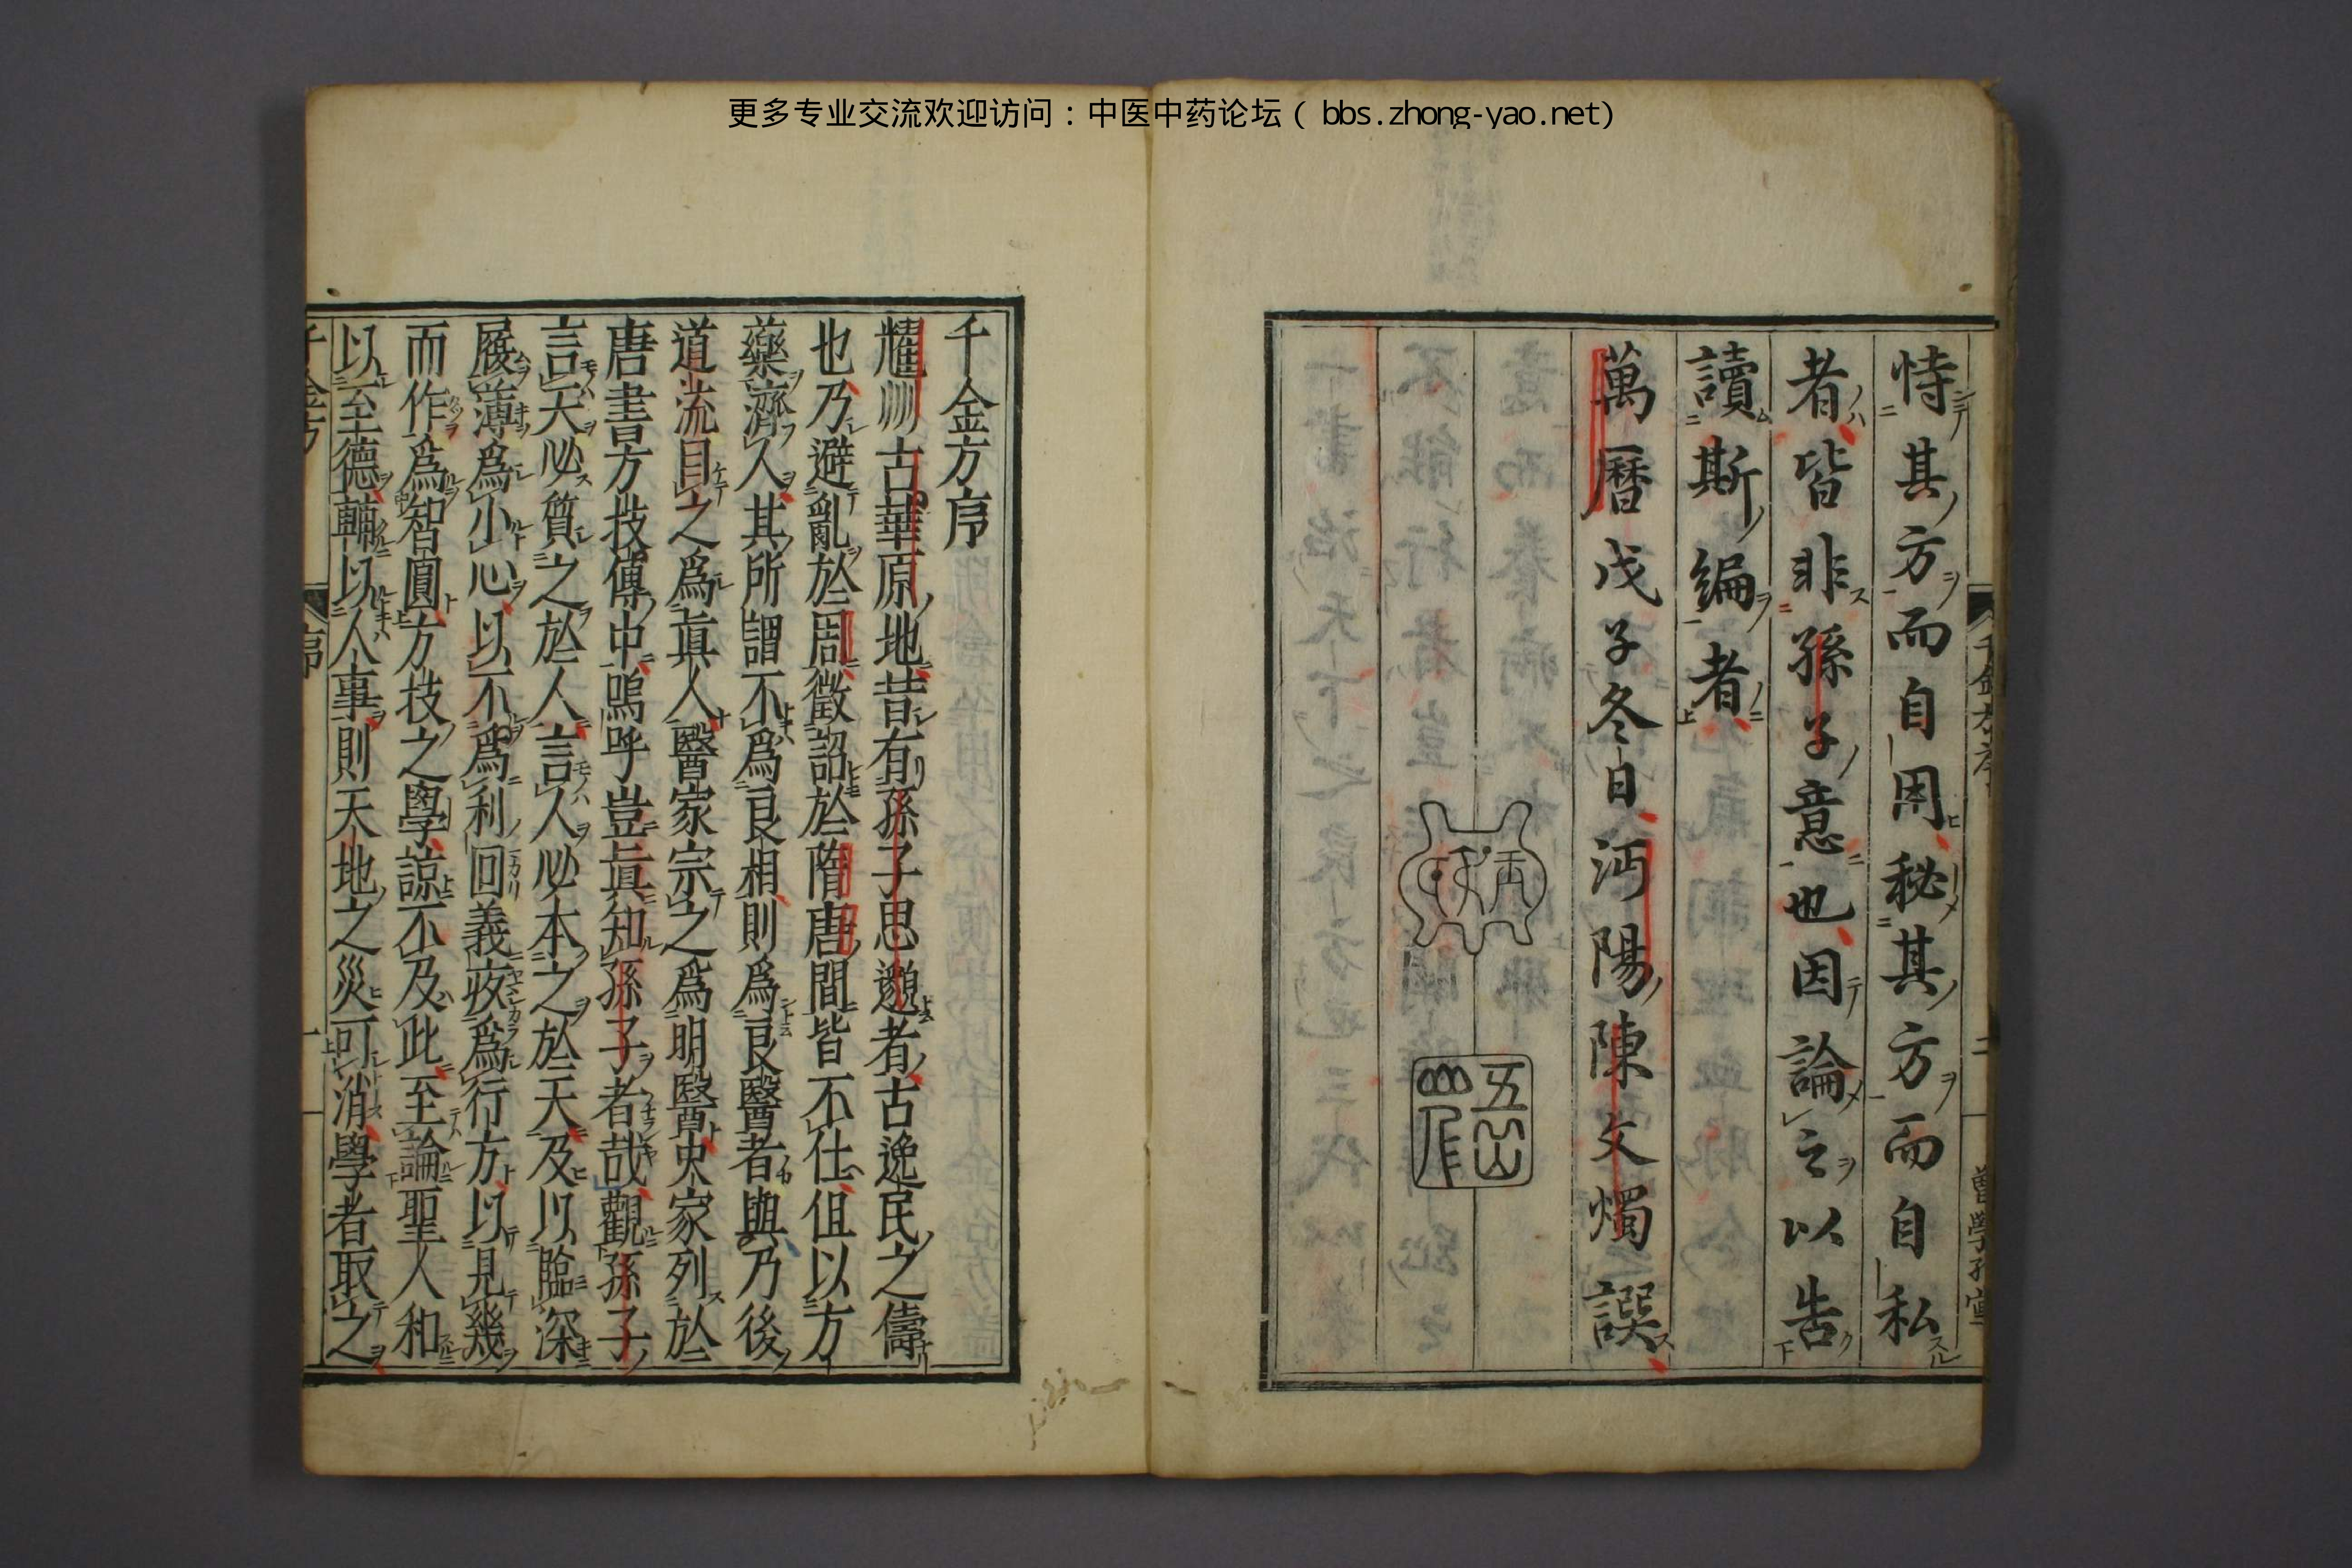 更多专业交流欢迎访问：中医中药论坛（bbs.zhong-yao.net）
恃其方而自用秘其方而自私
者皆非孫子意也因論之以告
讀斯編者
萬曆戊子冬日沔陽陳文燭譔
五山
千金方序
耀州古華原地昔有孫子思邈者古逸民之儔
也乃避亂於周徵詔於隋唐間皆不仕但以方
藥濟人其所謂不爲良相則爲良醫者與乃後
道流目之爲眞人醫家宗之爲明醫史家列於
唐書方技傳中嗚呼豈眞知孫子者哉觀孫子
言天必質之於人言人必本之於天及以臨深
履薄爲小心以不爲利回義疚爲行方以見幾
而作爲智圓方技之學諒不及此至論聖人和
以至德輔以人事則天地之災可消學者取之
序